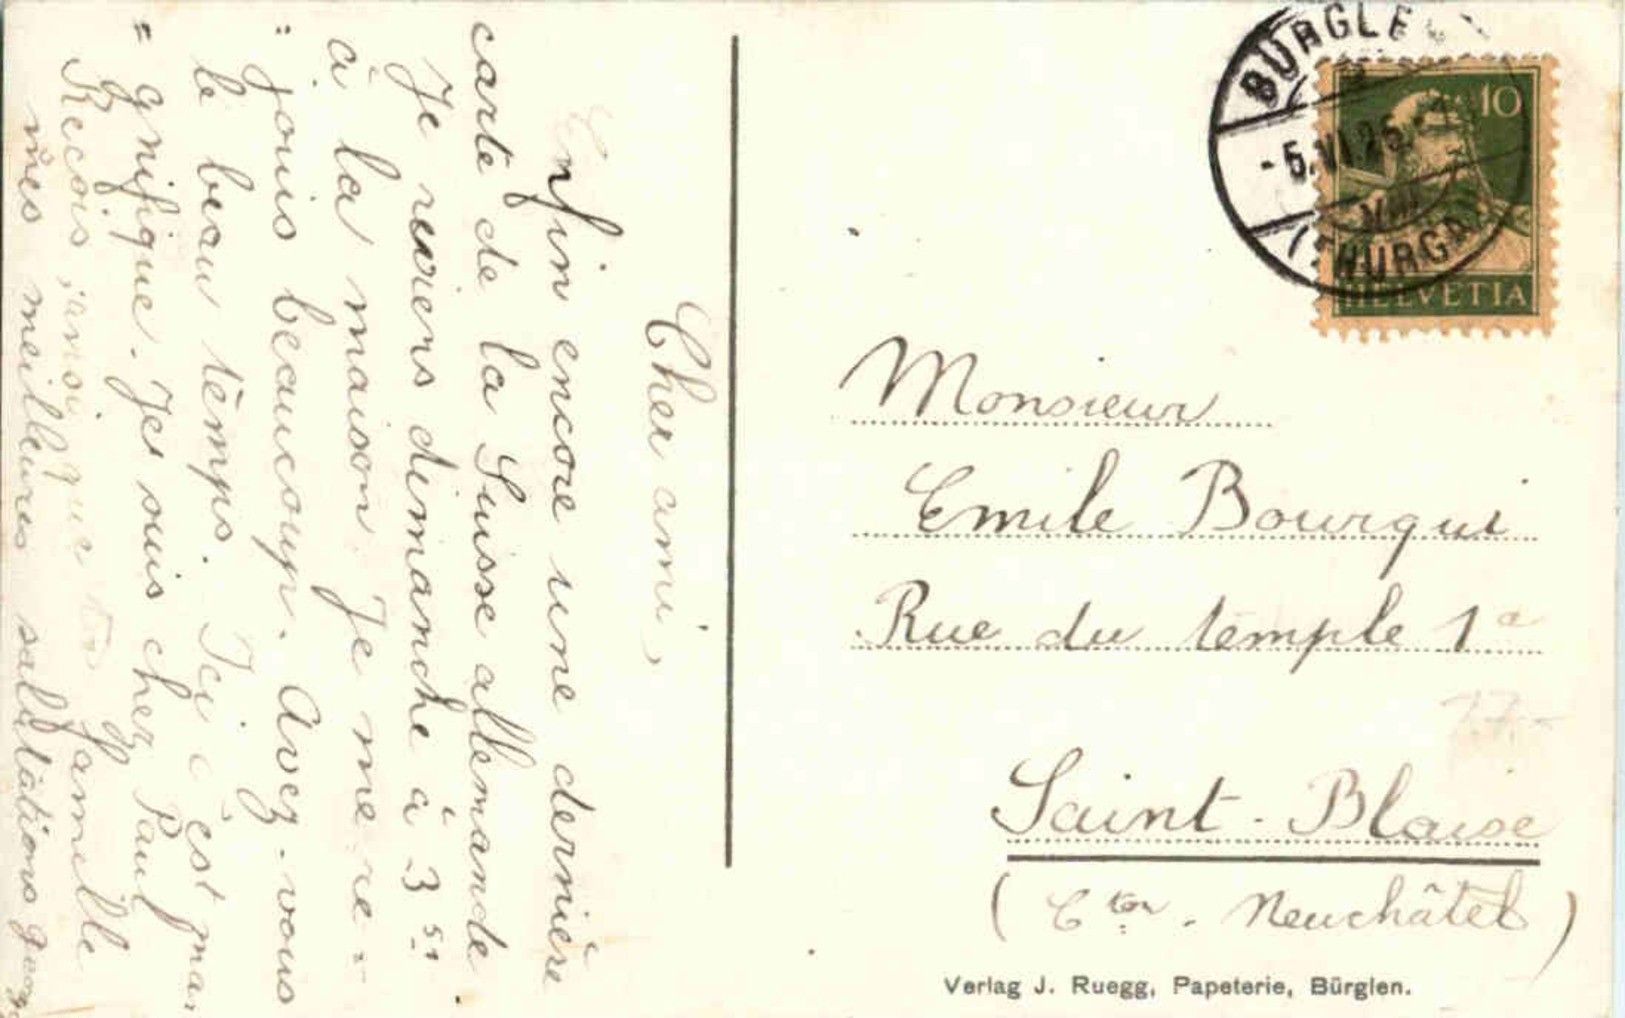 Cher ami,
Enfin encore une dernière
carte de la Suisse allemande
Je reviens dimanche à 3 51
à la maison. Je me re =
= jouis beaucoup. Avez-vous
le beau temps. Ici c'est ma,
= gnifique. Je suis chez Paul
Recois, ainsi que ta famille
mes meilleures salutations
BÜRGLE
- 5. VI 26
VIII
(THURGA
10
HELVETIA
Monsieur
Emile Bourqui
Rue du temple 1a
Saint-Blaise
(Cton. Neuchâtel)
17.-
Verlag J. Ruegg, Papeterie, Bürglen.